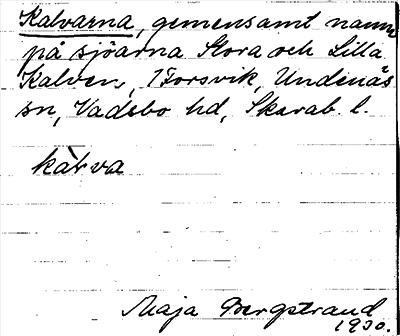 Kalvarna, gemensamt namn
på sjöarna Stora och Lilla
Kalven, Forsvik, Undenäs
sn, Vadsbo hd, Skarab. l.
kàlva
Maja Bergstrand
1930.